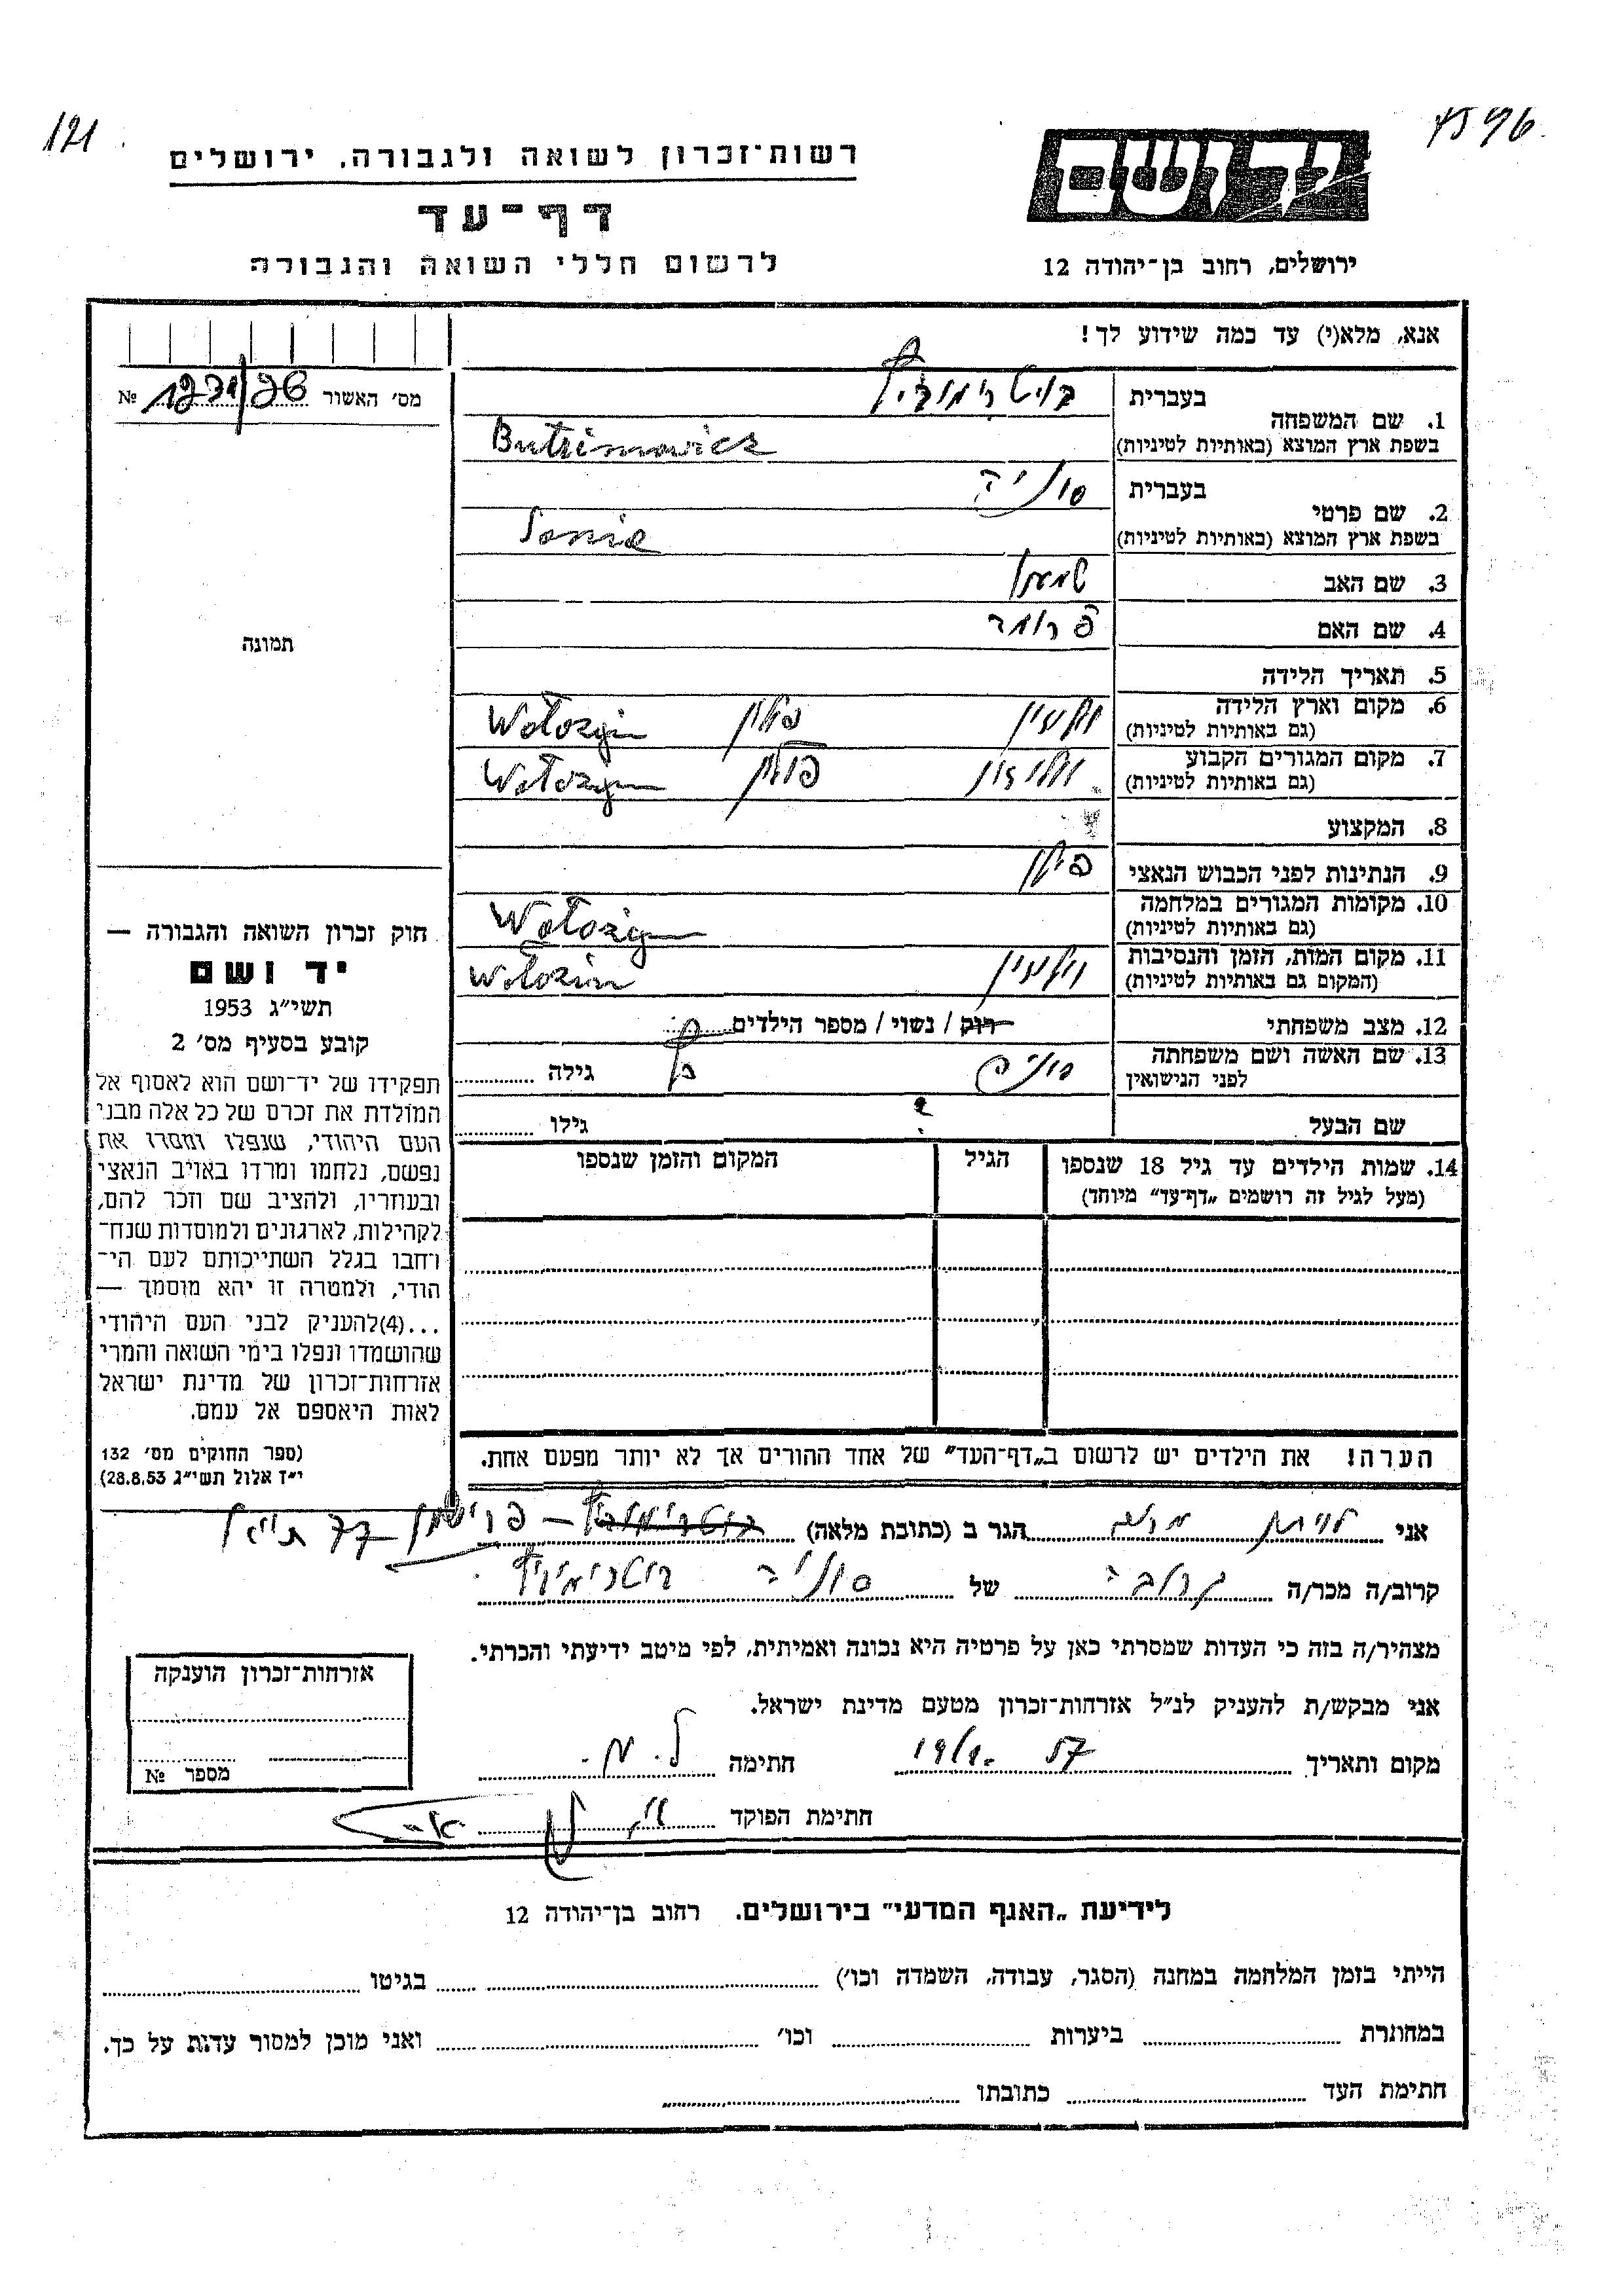 121
4596
רשות־זכרון לשואה ולגבורה, ירושלים
דף־עד
לרשום חללי השואה והגבורה
יד ושם
ירושלים, רחוב בן־יהודה 12
אנא, מלא(י) עד כמה שידוע לך!
מס׳ האשור №
תמונה
1. שם המשפחה בעברית בוטרימוביץ
בשפת ארץ המוצא (באותיות לטיניות) Butrimowicz
2. שם פרטי בעברית סוניה
בשפת ארץ המוצא (באותיות לטיניות) Sonia
3. שם האב שמעון
4. שם האם פרומה
5. תאריך הלידה
6. מקום וארץ הלידה (גם באותיות לטיניות) וולוז׳ין פולין Wołozyn
7. מקום המגורים הקבוע (גם באותיות לטיניות) וולוז׳ין פולין Wołozyn
8. המקצוע
9. הנתינות לפני הכבוש הנאצי פולין
10. מקומות המגורים במלחמה (גם באותיות לטיניות) Wołożyn
11. מקום המות, הזמן והנסיבות (המקום גם באותיות לטיניות) וולוז׳ין Wołozin
12. מצב משפחתי רוק / נשוי / מספר הילדים
13. שם האשה ושם משפחתה לפני הנישואין גילה
שם הבעל ? גילו
14. שמות הילדים עד גיל 18 שנספו (מעל לגיל זה רושמים „דף־עד” מיוחד)
הגיל
המקום והזמן שנספו
הערה! את הילדים יש לרשום ב„דף־העד” של אחד ההורים אך לא יותר מפעם אחת.
חוק זכרון השואה והגבורה —
יד ושם
תשי״ג 1953
קובע בסעיף מס׳ 2
תפקידו של יד־ושם הוא לאסוף אל
המולדת את זכרם של כל אלה מבני
העם היהודי, שנפלו ומסרו את
נפשם, נלחמו ומרדו באויב הנאצי
ובעוזריו, ולהציב שם וזכר להם,
לקהילות, לארגונים ולמוסדות שנח־
רחבו בגלל השתייכותם לעם הי־
הודי, ולמטרה זו יהא מוסמך —
...(4)להעניק לבני העם היהודי
שהושמדו ונפלו בימי השואה והמרי
אזרחות־זכרון של מדינת ישראל
לאות היאספם אל עמם.
(ספר החוקים מס׳ 132
י״ז אלול תשי״ג 28.8.53)
אני לויתן משה הגר ב (כתובת מלאה) בוטרימוביץ – פרישמן 77 ת״א
קרוב/ה מכר/ה קרובה של סוניה בוטרימוביץ
מצהיר/ה בזה כי העדות שמסרתי כאן על פרטיה היא נכונה ואמיתית, לפי מיטב ידיעתי והכרתי.
אני מבקש/ת להעניק לנ״ל אזרחות־זכרון מטעם מדינת ישראל.
מקום ותאריך 57 חתימה ל. מ.
חתימת הפוקד
אזרחות־זכרון הוענקה
מספר №
לידיעת „האגף המדעי” בירושלים. רחוב בן־יהודה 12
הייתי בזמן המלחמה במחנה (הסגר, עבודה, השמדה וכו׳) בגיטו
במחתרת ביערות וכו׳ ואני מוכן למסור עדות על כך.
חתימת העד כתובתו